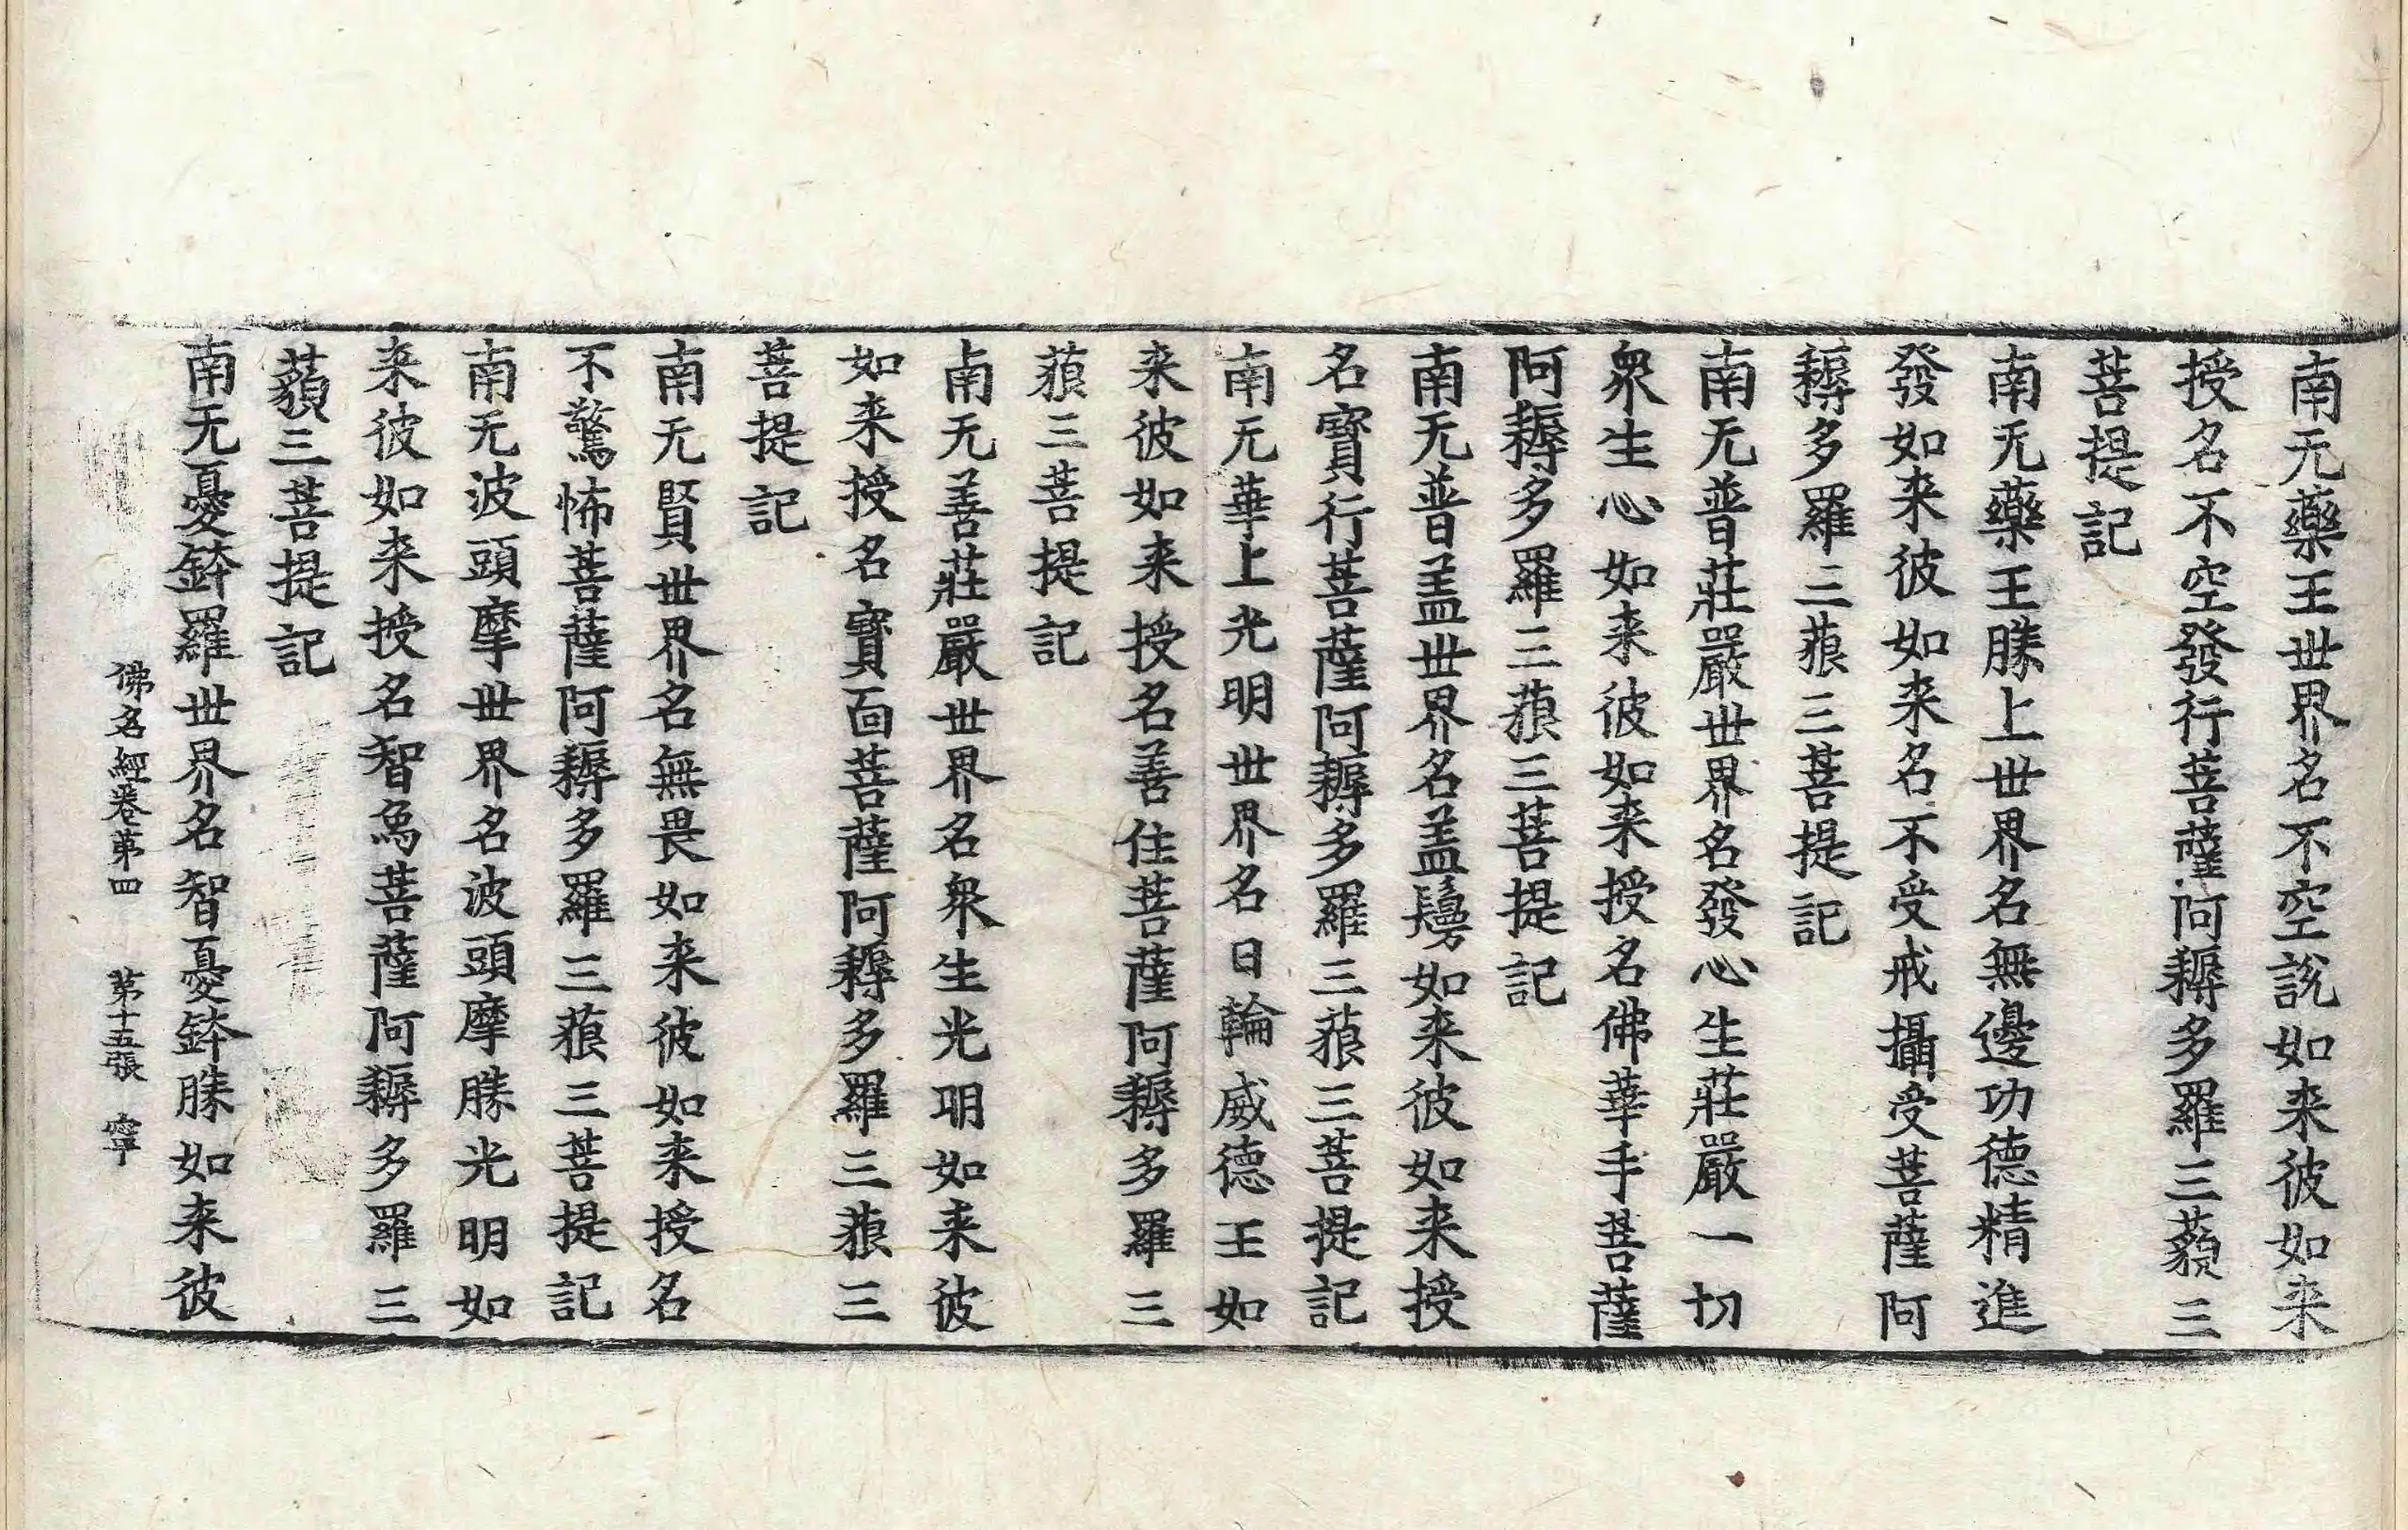 南无藥王世界名不空說如来彼如来
授名不空發行菩薩阿耨多羅三藐三
菩提記
南无藥王勝上世界名無邊功德精進
發如来彼如来名不受戒攝受菩薩阿
耨多羅三藐三菩提記
南无普莊嚴世界名發心生莊嚴一切
衆生心如来彼如来授名佛華手菩薩
阿耨多羅三藐三菩提記
南无普盖世界名盖鬘如来彼如来授
名寶行菩薩阿耨多羅三藐三菩提記
南无華上光明世界名日輪威德王如
来彼如来授名善住菩薩阿耨多羅三
藐三菩提記
南无善莊嚴世界名衆生光明如来彼
如来授名寶面菩薩阿耨多羅三藐三
菩提記
南无賢世界名無畏如来彼如来授名
不驚怖菩薩阿耨多羅三藐三菩提記
南无波頭摩世界名波頭摩勝光明如
来彼如来授名智爲菩薩阿耨多羅三
藐三菩提記
南无憂鉢羅世界名智憂鉢勝如来彼
佛名經卷第四 第十五張 寧